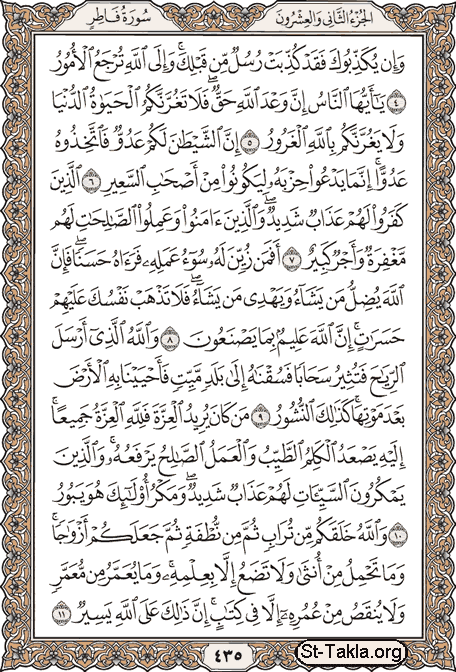 الجزء الثاني والعشرون سورة فاطر
وَإِن يُكَذِّبُوكَ فَقَدْ كُذِّبَتْ رُسُلٌ مِّن قَبْلِكَ ۚ وَإِلَى ٱللَّهِ تُرْجَعُ ٱلْأُمُورُ
٤ يَـٰٓأَيُّهَا ٱلنَّاسُ إِنَّ وَعْدَ ٱللَّهِ حَقٌّ ۖ فَلَا تَغُرَّنَّكُمُ ٱلْحَيَوٰةُ ٱلدُّنْيَا
وَلَا يَغُرَّنَّكُم بِٱللَّهِ ٱلْغَرُورُ ٥ إِنَّ ٱلشَّيْطَـٰنَ لَكُمْ عَدُوٌّ فَٱتَّخِذُوهُ
عَدُوًّا ۚ إِنَّمَا يَدْعُوا۟ حِزْبَهُۥ لِيَكُونُوا۟ مِنْ أَصْحَـٰبِ ٱلسَّعِيرِ ٦ ٱلَّذِينَ
كَفَرُوا۟ لَهُمْ عَذَابٌ شَدِيدٌ ۖ وَٱلَّذِينَ ءَامَنُوا۟ وَعَمِلُوا۟ ٱلصَّـٰلِحَـٰتِ لَهُم
مَّغْفِرَةٌ وَأَجْرٌ كَبِيرٌ ٧ أَفَمَن زُيِّنَ لَهُۥ سُوٓءُ عَمَلِهِۦ فَرَءَاهُ حَسَنًا ۖ فَإِنَّ
ٱللَّهَ يُضِلُّ مَن يَشَآءُ وَيَهْدِى مَن يَشَآءُ ۖ فَلَا تَذْهَبْ نَفْسُكَ عَلَيْهِمْ
حَسَرَٰتٍ ۚ إِنَّ ٱللَّهَ عَلِيمٌۢ بِمَا يَصْنَعُونَ ٨ وَٱللَّهُ ٱلَّذِىٓ أَرْسَلَ
ٱلرِّيَـٰحَ فَتُثِيرُ سَحَابًا فَسُقْنَـٰهُ إِلَىٰ بَلَدٍ مَّيِّتٍ فَأَحْيَيْنَا بِهِ ٱلْأَرْضَ
بَعْدَ مَوْتِهَا ۚ كَذَٰلِكَ ٱلنُّشُورُ ٩ مَن كَانَ يُرِيدُ ٱلْعِزَّةَ فَلِلَّهِ ٱلْعِزَّةُ جَمِيعًا ۚ
إِلَيْهِ يَصْعَدُ ٱلْكَلِمُ ٱلطَّيِّبُ وَٱلْعَمَلُ ٱلصَّـٰلِحُ يَرْفَعُهُۥ ۚ وَٱلَّذِينَ
يَمْكُرُونَ ٱلسَّيِّـَٔاتِ لَهُمْ عَذَابٌ شَدِيدٌ ۖ وَمَكْرُ أُو۟لَـٰٓئِكَ هُوَ يَبُورُ
١٠ وَٱللَّهُ خَلَقَكُم مِّن تُرَابٍ ثُمَّ مِن نُّطْفَةٍ ثُمَّ جَعَلَكُمْ أَزْوَٰجًا ۚ
وَمَا تَحْمِلُ مِنْ أُنثَىٰ وَلَا تَضَعُ إِلَّا بِعِلْمِهِۦ ۚ وَمَا يُعَمَّرُ مِن مُّعَمَّرٍ
وَلَا يُنقَصُ مِنْ عُمُرِهِۦٓ إِلَّا فِى كِتَـٰبٍ ۚ إِنَّ ذَٰلِكَ عَلَى ٱللَّهِ يَسِيرٌ ١١
٤٣٥
St-Takla.org